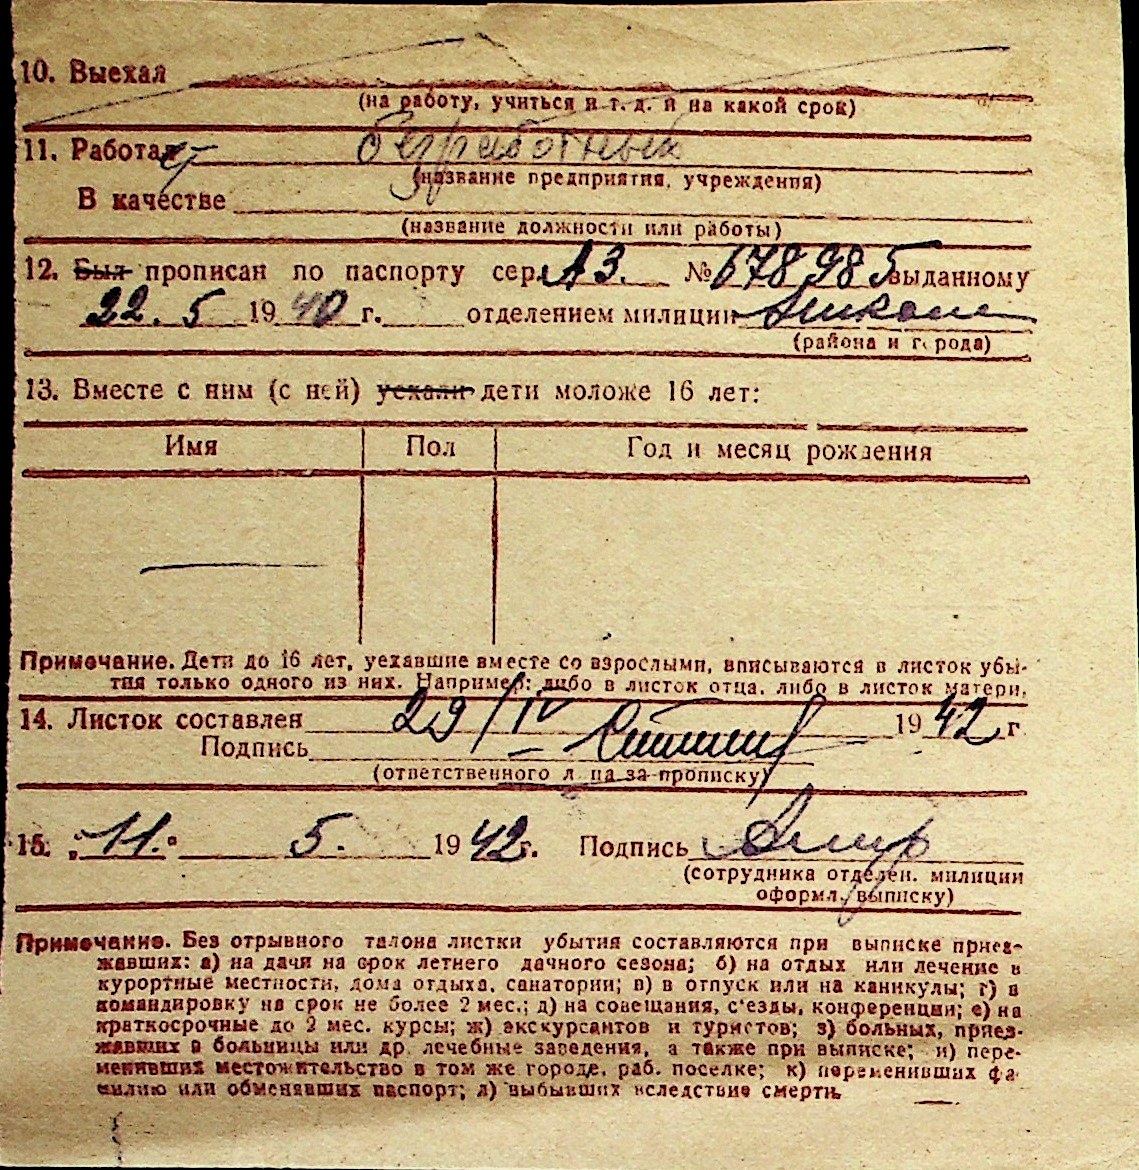 10. Выехал
(на работу, учиться и т. д. и на какой срок)
11. Работает безработный
(название предприятия, учреждения)
В качестве
(название должности или работы)
12. Был прописан по паспорту сер. АЗ. № 678985 выданному
22. 5 1940 г. отделением милиции
(района и города)
13. Вместе с ним (с ней) уехали дети моложе 16 лет:
Имя Пол Год и месяц рождения
Примечание. Дети до 16 лет, уехавшие вместе со взрослыми, вписываются в листок убы-
тия только одного из них. Например: либо в листок отца, либо в листок матери.
14. Листок составлен 29/IV 1942 г
Подпись
(ответственного лица за прописку)
15. „11." 5. 1942 г. Подпись
(сотрудника отделен. милиции
оформл. выписку)
Примечание. Без отрывного талона листки убытия составляются при выписке приез-
жавших: а) на дачи на срок летнего дачного сезона; б) на отдых или лечение в
курортные местности, дома отдыха, санатории; в) в отпуск или на каникулы; г) в
командировку на срок не более 2 мес.; д) на совещания, с'езды, конференции; е) на
краткосрочные до 2 мес. курсы; ж) экскурсантов и туристов; з) больных, приез-
жавших в больницы или др. лечебные заведения, а также при выписке; и) пере-
менивших местожительство в том же городе, раб. поселке; к) переменивших фа-
милию или обменявших паспорт; л) выбывших вследствие смерти.